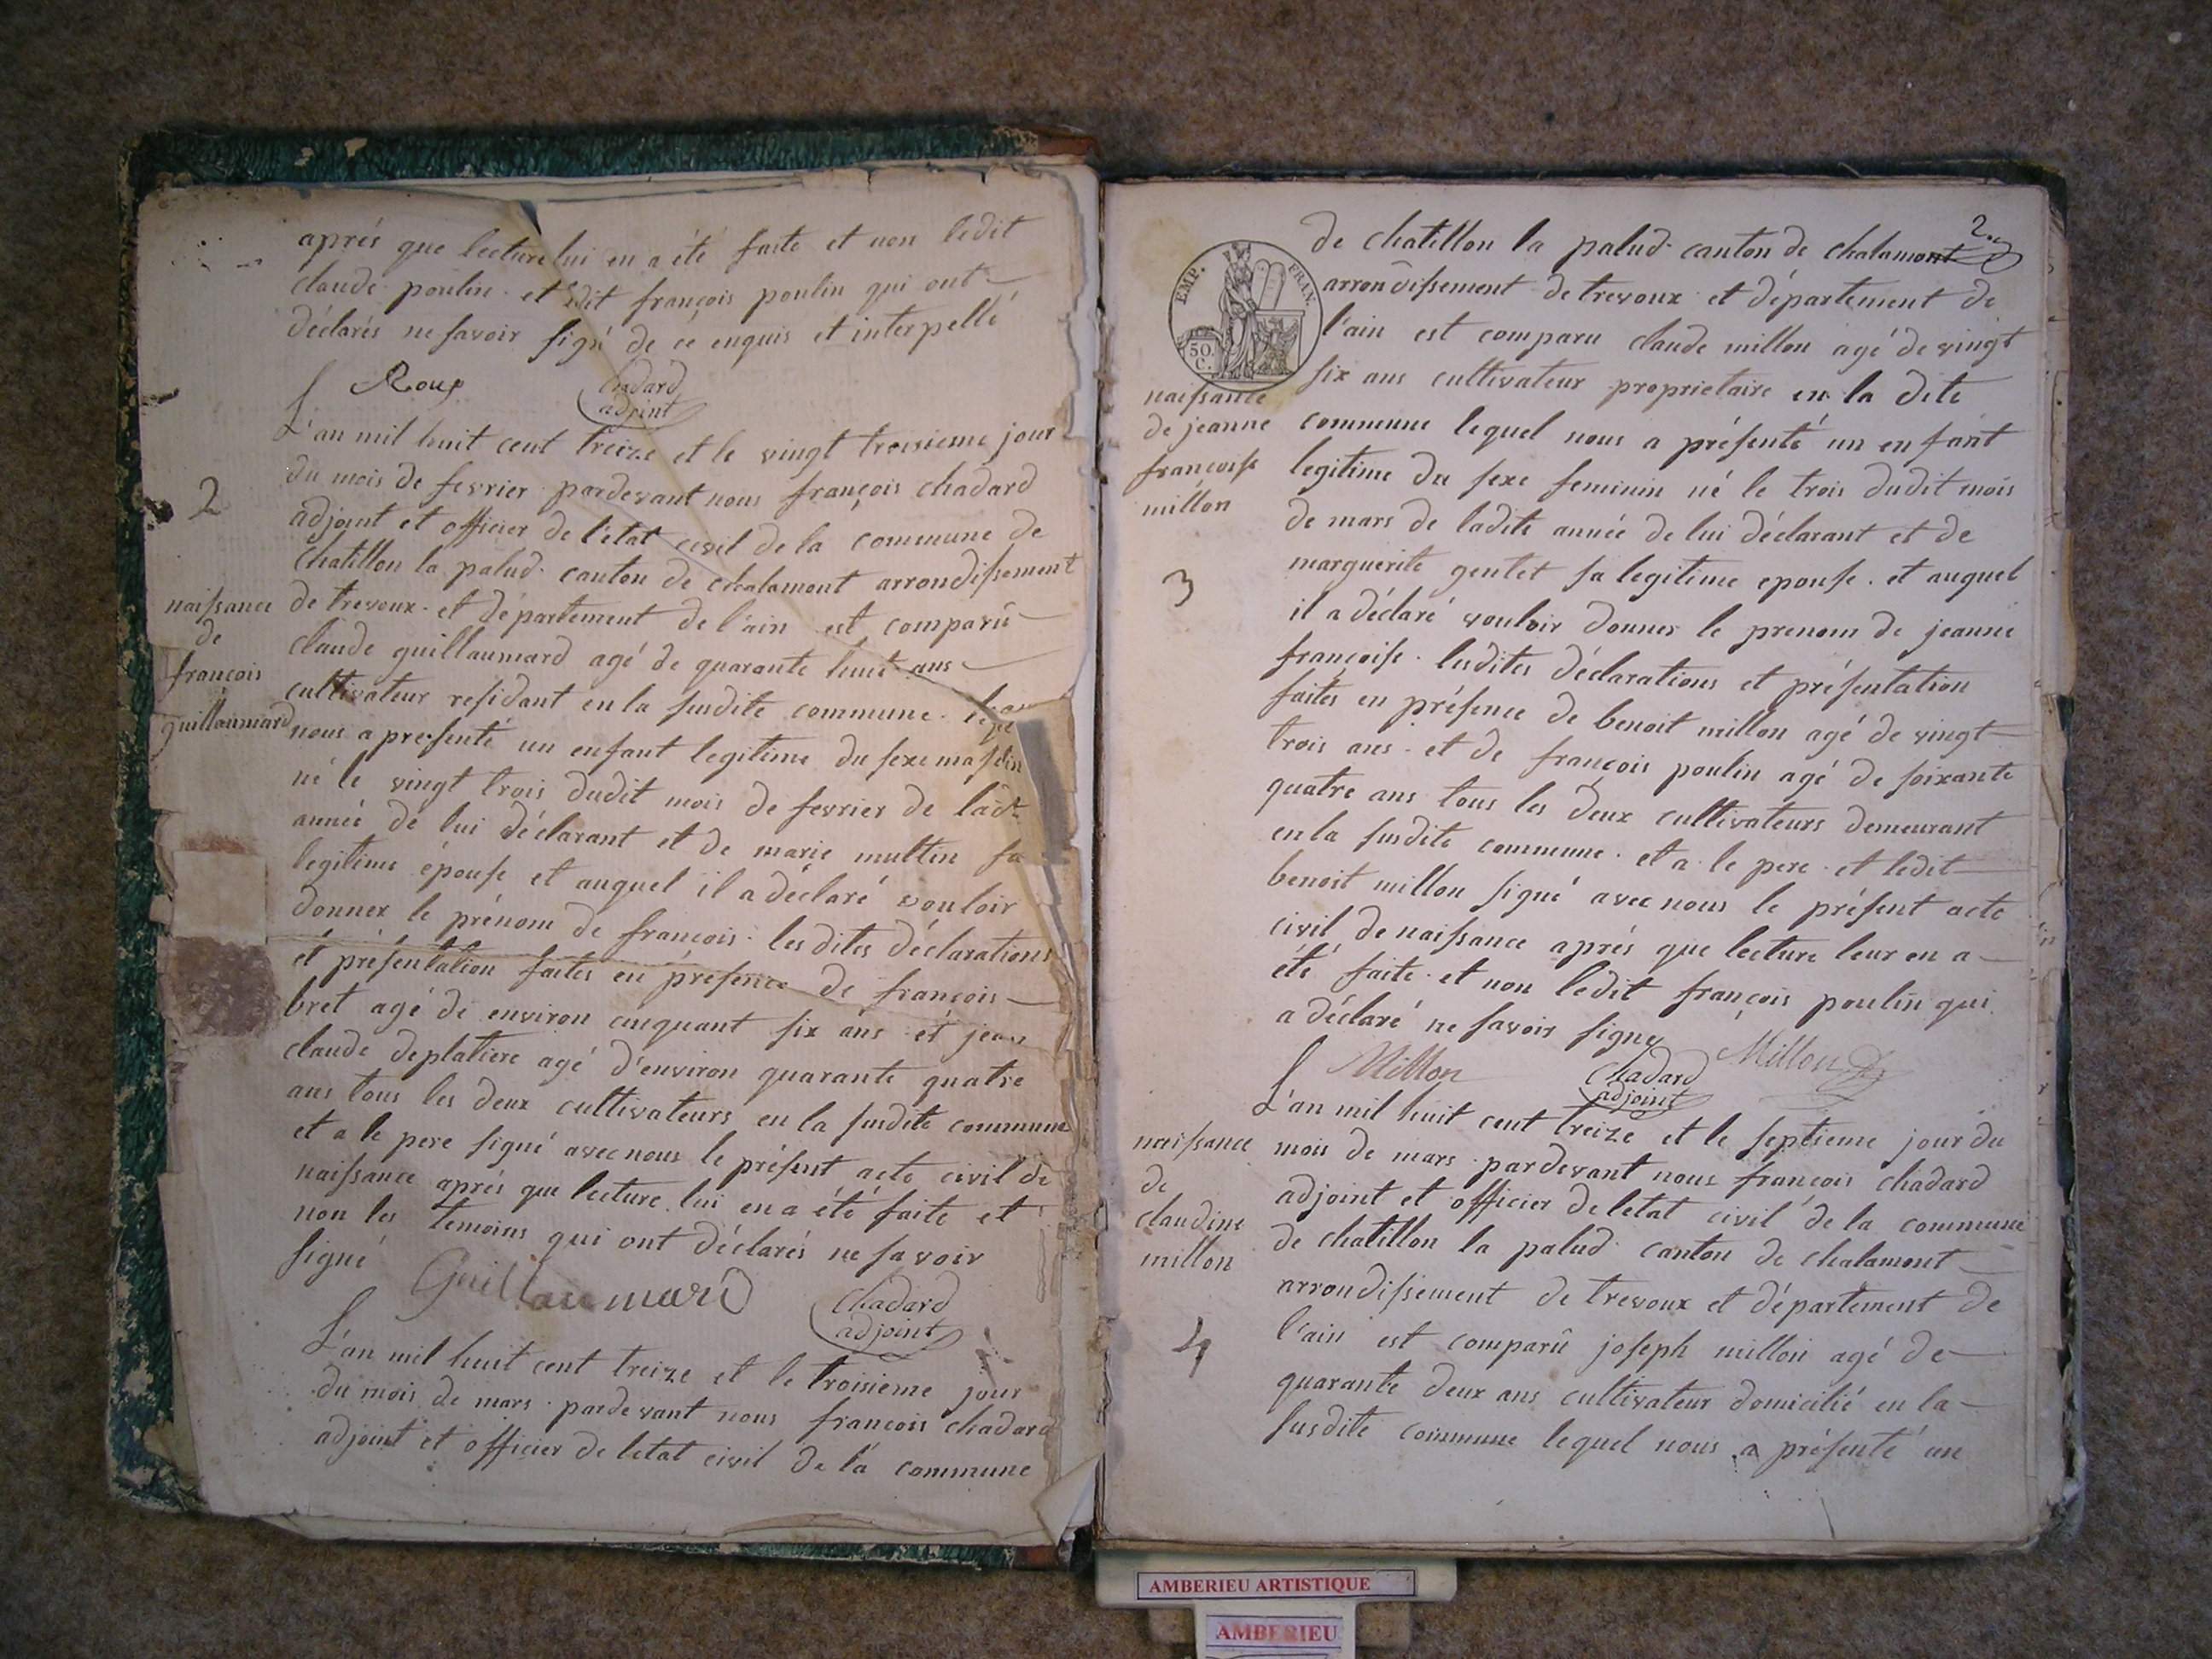 aprés que lecture lui en a été faite et non ledit
claude poulin et ledit françois poulin qui ont
déclarés ne savoir signé de ce enquis et interpellé
Roux
Chadard
adjoint
L'an mil huit cent treize et le vingt troisieme jour
du mois de fevrier pardevant nous françois chadard
adjoint et officier de l'état civil de la commune de
Chatillon la palud canton de chalamont arrondissement
de trevoux et département de l'ain est comparû
claude guillaumard agé de quarante huit ans
cultivateur residant en la susdite commune
nous a presenté un enfant legitime du sexe masculin
né le vingt trois dudit mois de fevrier de ladte
année de lui déclarant et de marie multin sa
legitime épouse et auquel il a déclaré vouloir
donner le prénom de françois les dites déclarations
et présentation faites en présence de françois
bret agé de environ cinquant six ans et jean
claude deplatiere agé d'environ quarante quatre
ans tous les deux cultivateurs en la susdite commune
et a le pere signé avec nous le présent acte civil de
naissance aprés que lecture lui en a été faite et
non les temoins qui ont déclarés ne savoir
signé
Guillaumard
Chadard
adjoint
L'an mil huit cent treize et le troisieme jour
du mois de mars pardevant nous francois chadard
adjoint et officier de letat civil de la commune
2
naissance
de
françois
guillaumard
2
de chatillon la palud canton de chalamont
arrondissement de trevoux et département de
l'ain est comparu claude millon agé de vingt
six ans cultivateur proprietaire en la dite
commune lequel nous a présenté un enfant
legitime du sexe feminin né le trois dudit mois
de mars de ladite année de lui déclarant et de
marguerite gentet sa legitime epouse et auquel
il a déclaré vouloir donner le prenom de jeanne
françoise lesdites déclarations et présentation
faites en présence de benoit millon agé de vingt
trois ans et de françois poulin agé de soixante
quatre ans tous les deux cultivateurs demeurant
en la susdite commune et a le pere et ledit
benoit millon signé avec nous le présent acte
civil de naissance aprés que lecture leur en a
été faite et non ledit françois poulin qui
a déclaré ne savoir signe
Millon
Chadard
adjoint
Millon
L'an mil huit cent treize et le septieme jour du
mois de mars pardevant nous françois chadard
adjoint et officier de letat civil de la commune
de chatillon la palud canton de chalamont
arrondissement de trevoux et département de
l'ain est comparû joseph millon agé de
quarante deux ans cultivateur domicilié en la
susdite commune lequel nous a présenté un
EMP. FRAN.
50.
C.
naissance
de jeanne
françoise
millon
3
naissance
de
claudine
millon
4
AMBERIEU ARTISTIQUE
AMBERIEU